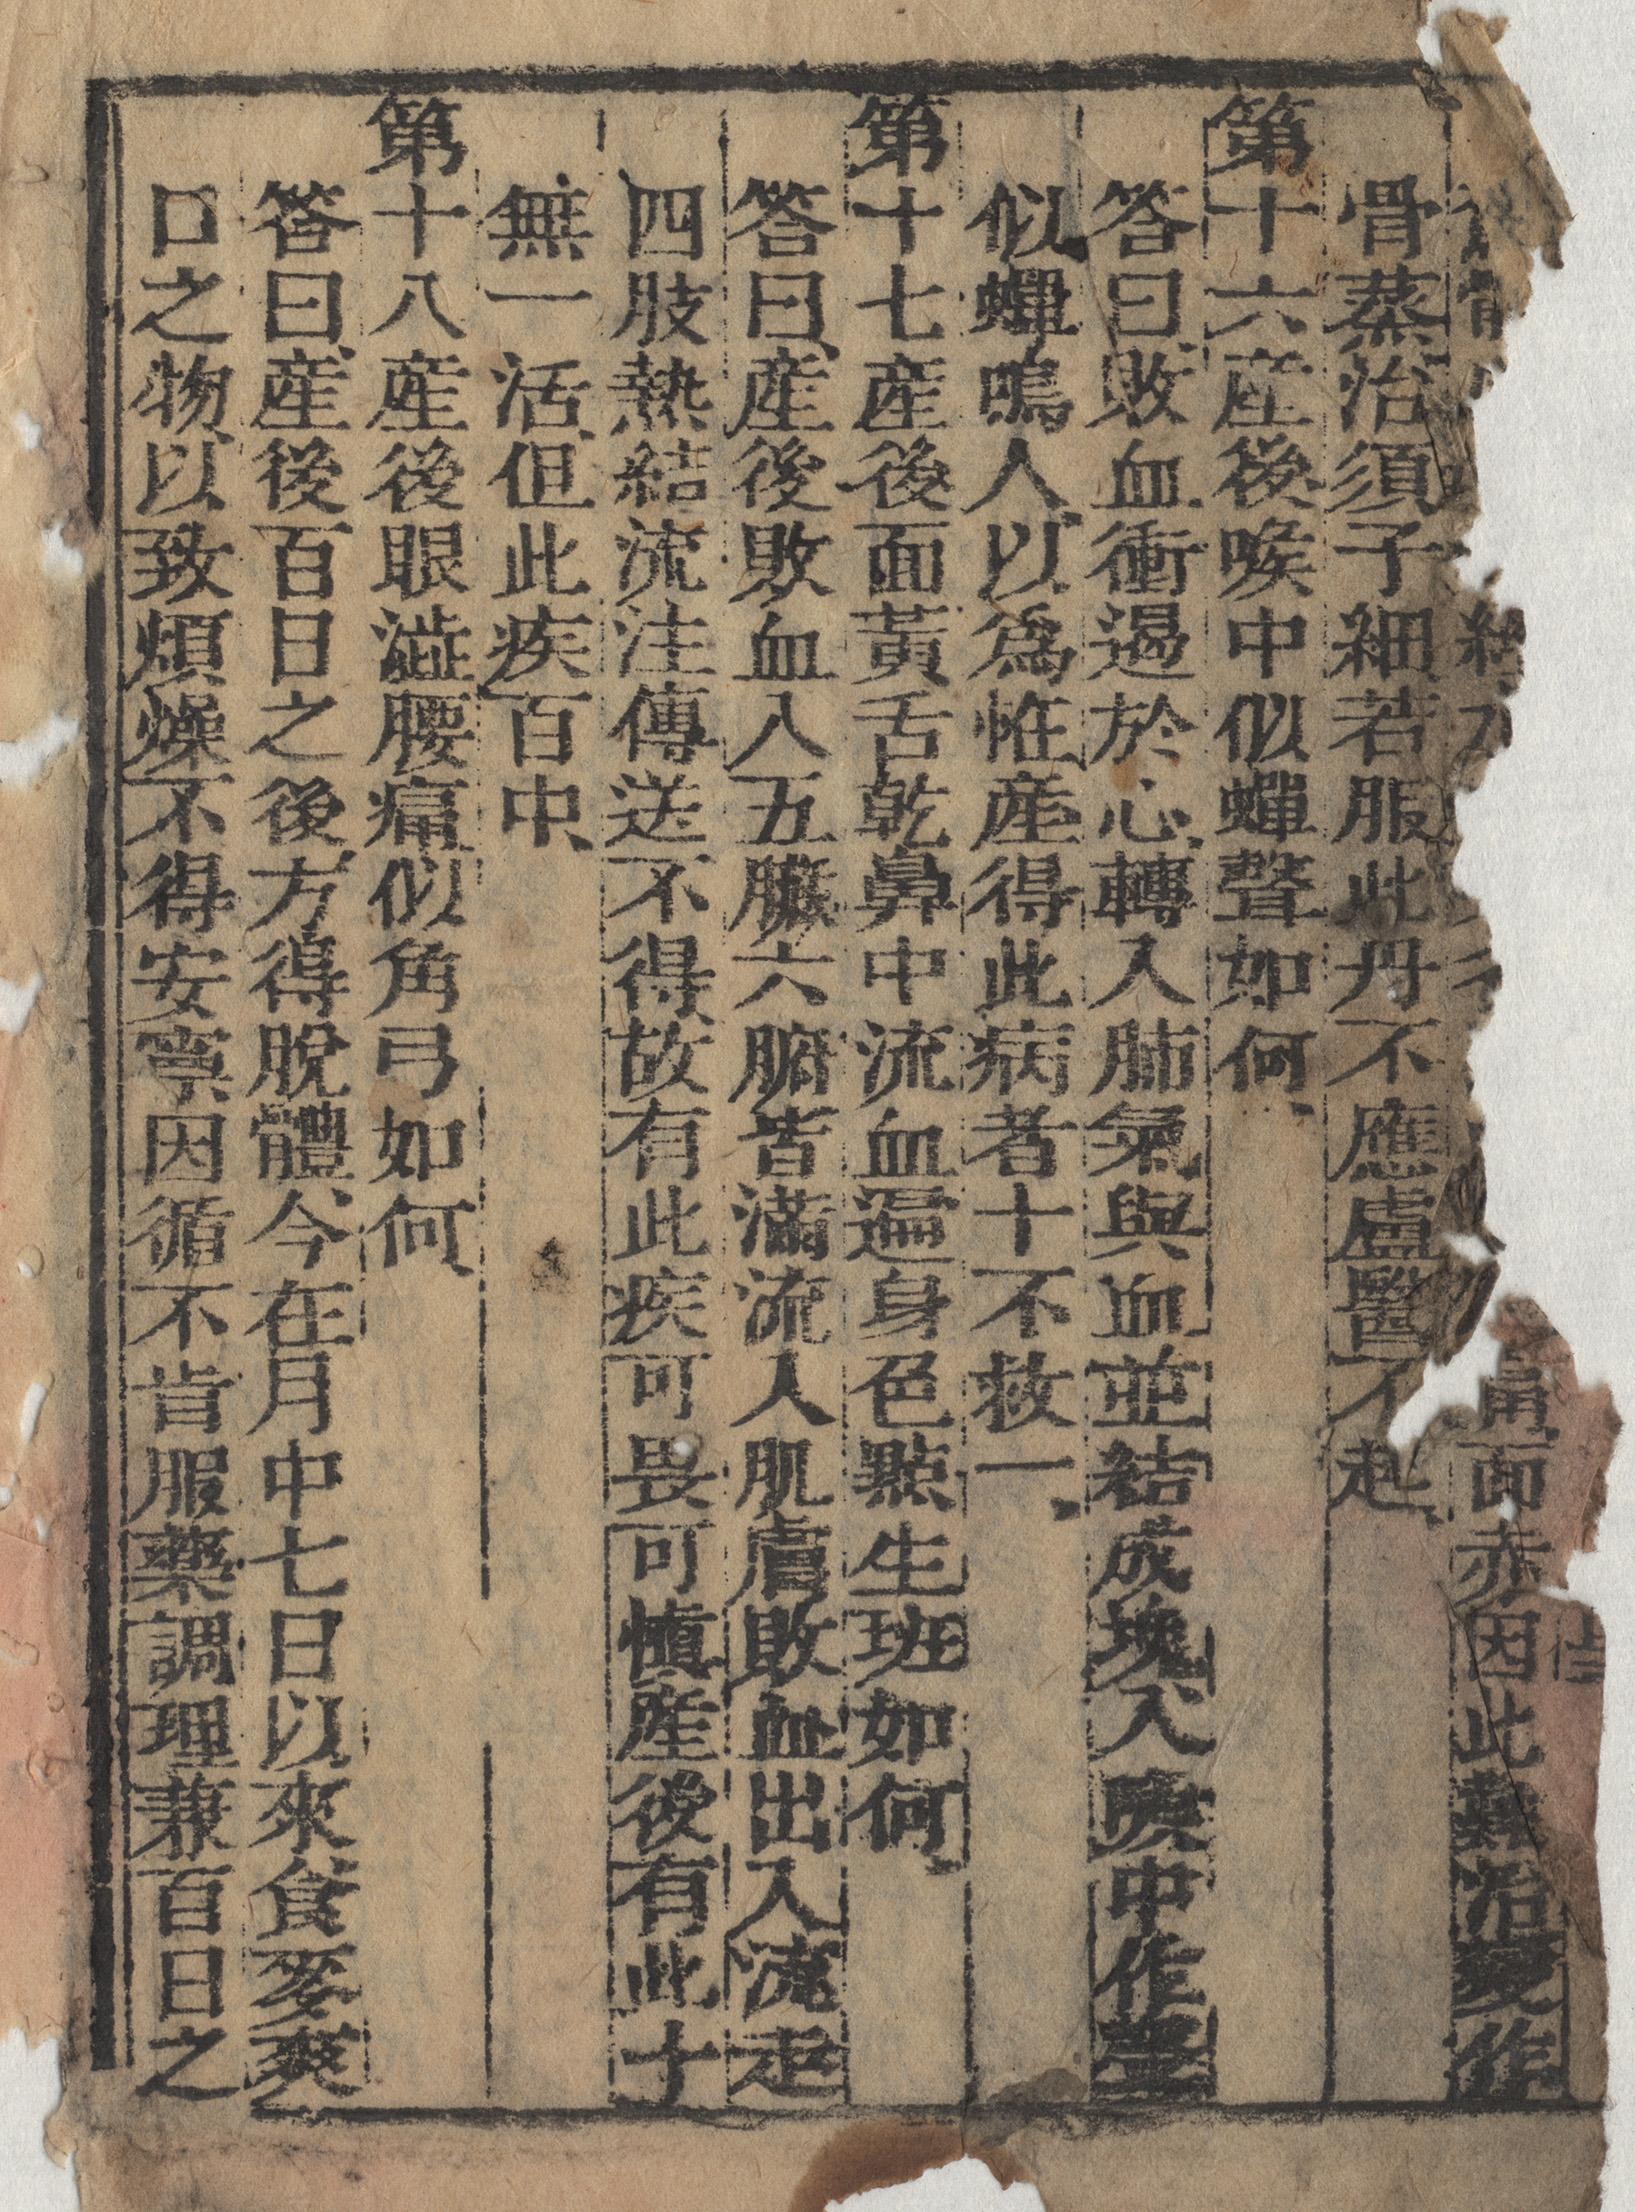 面赤因此難治變作
骨蒸治須子細若服此丹不應盧醫不起、
第十六産後喉中似蟬聲如何、
答曰、敗血衝過於心、轉入肺氣與血並結成塊入喉中作聲
似蟬鳴人、以爲恠産得此病者十不救一、
第十七産後面黃舌乾鼻中流血遍身色點生班如何、
答曰、産後敗血入五臟六腑皆滿流入肌膚敗血出入流走
四肢熱結流注傳送不得故有此疾可畏可慎産後有此十
無一活、但此疾百中、
第十八産後眼澁腰痛似角弓如何、
答曰、産後百日之後、方得脫體、今在月中七日以來食
口之物、以致煩燥不得安寧因循不肯服藥調理兼百日之